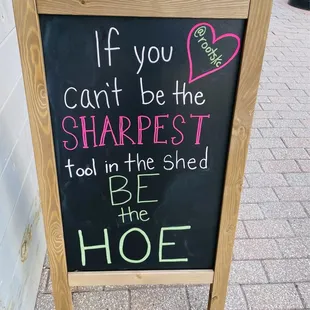 @rootskc
If you
can't be the
SHARPEST
tool in the shed
BE
the
HOE